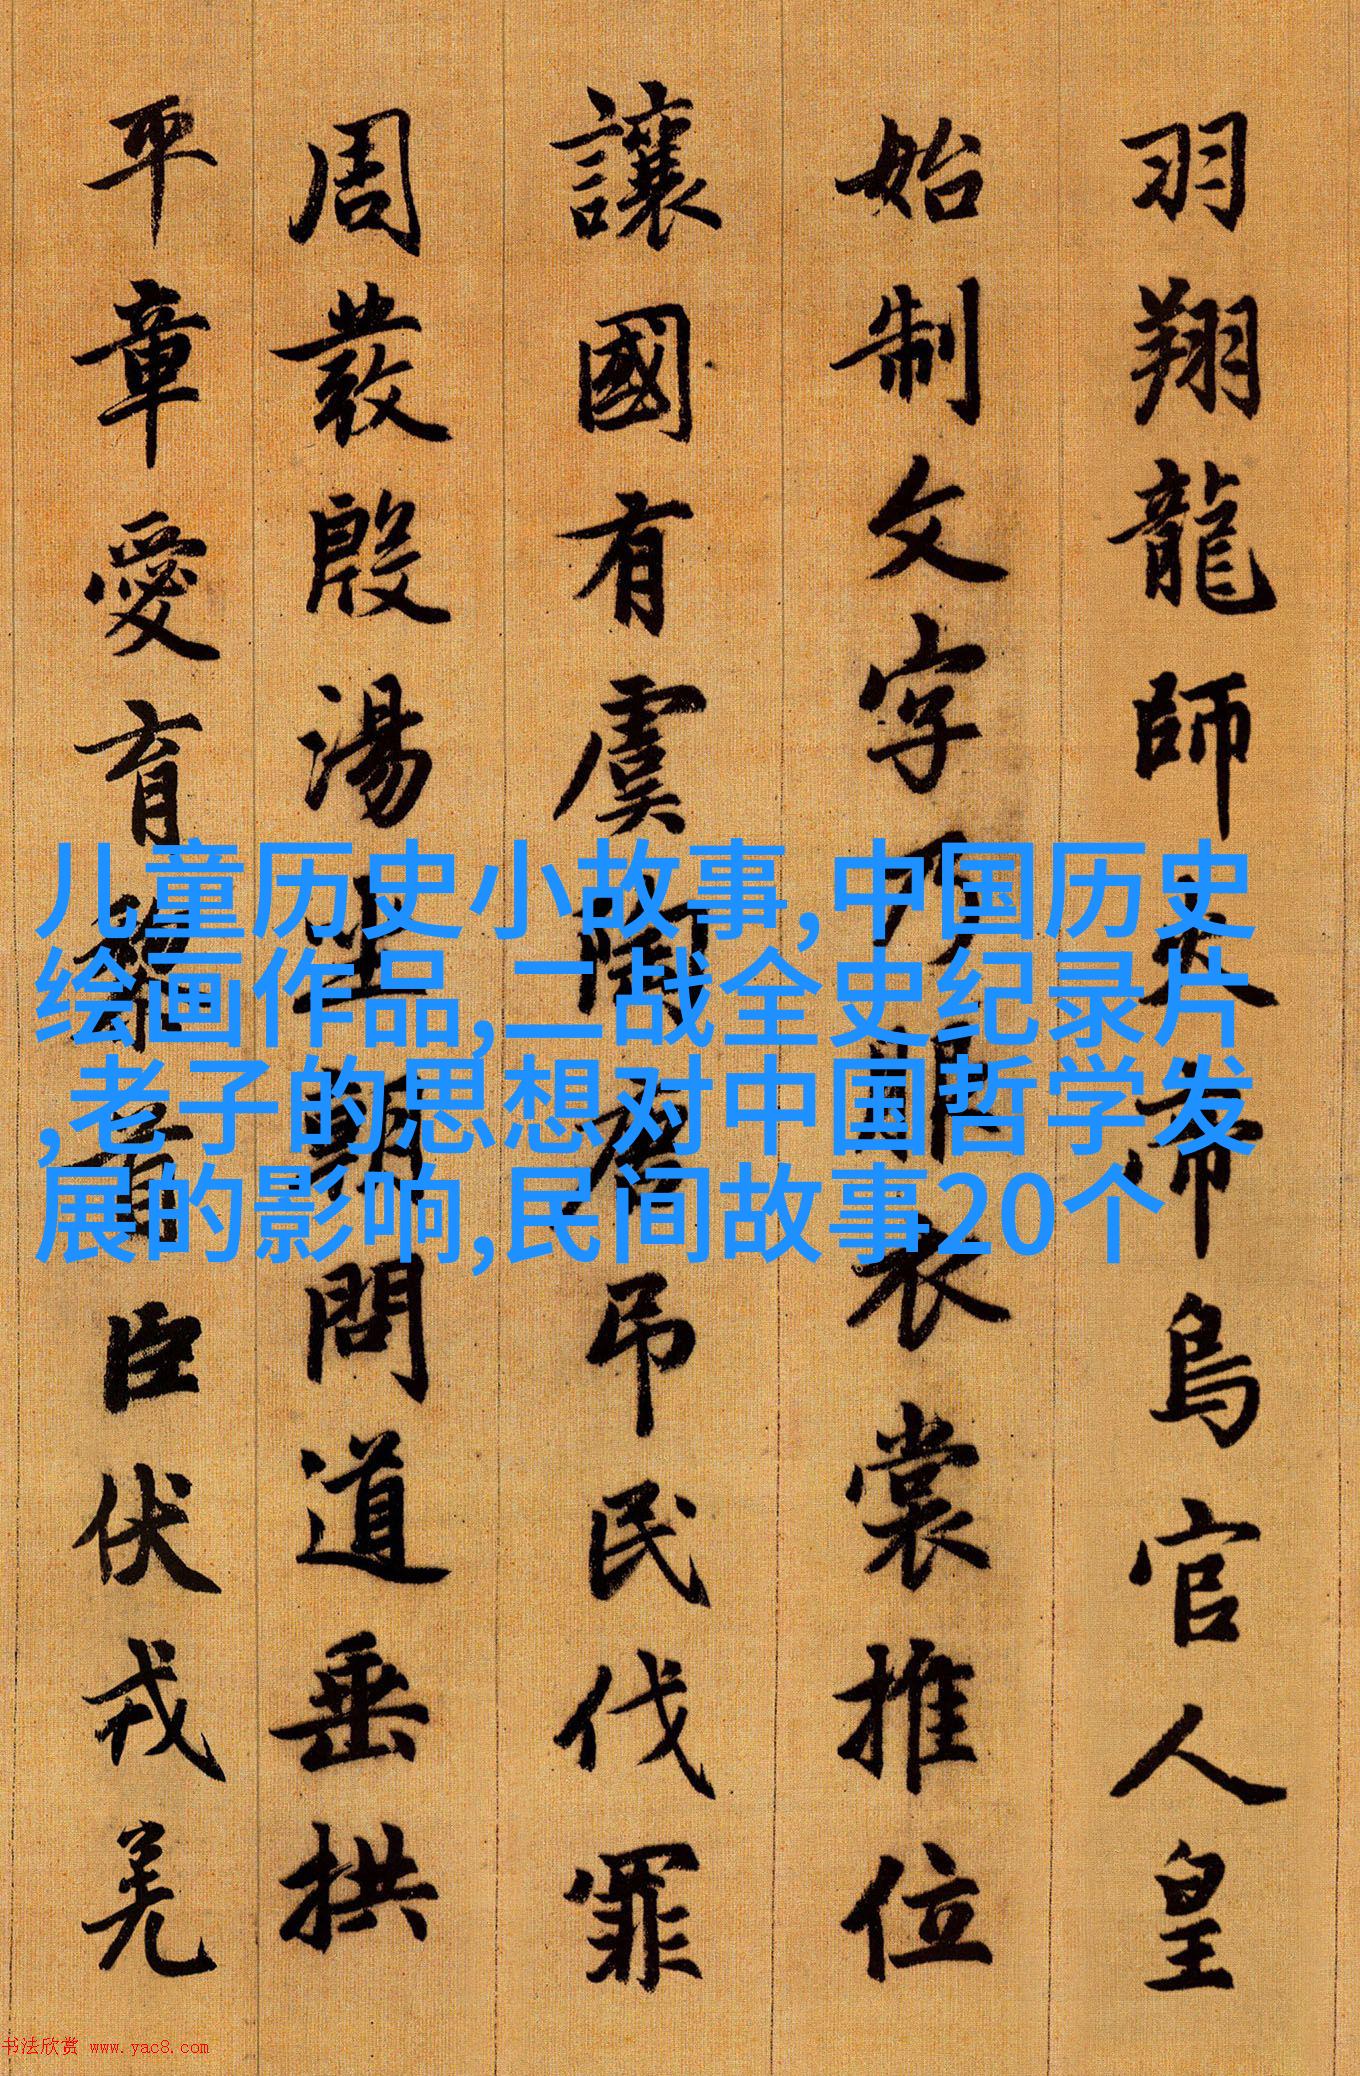 羽翔龍師火帝鳥官人皇
始制文字乃服衣裳推位
讓國有虞陶唐吊民伐罪
周發殷湯坐朝問道垂拱
平章愛育黎首臣伏戎羌
儿童历史小故事,中国历史
绘画作品,二战全史纪录片
,老子的思想对中国哲学发
展的影响,民间故事20个
书法欣赏 www.yac8.com